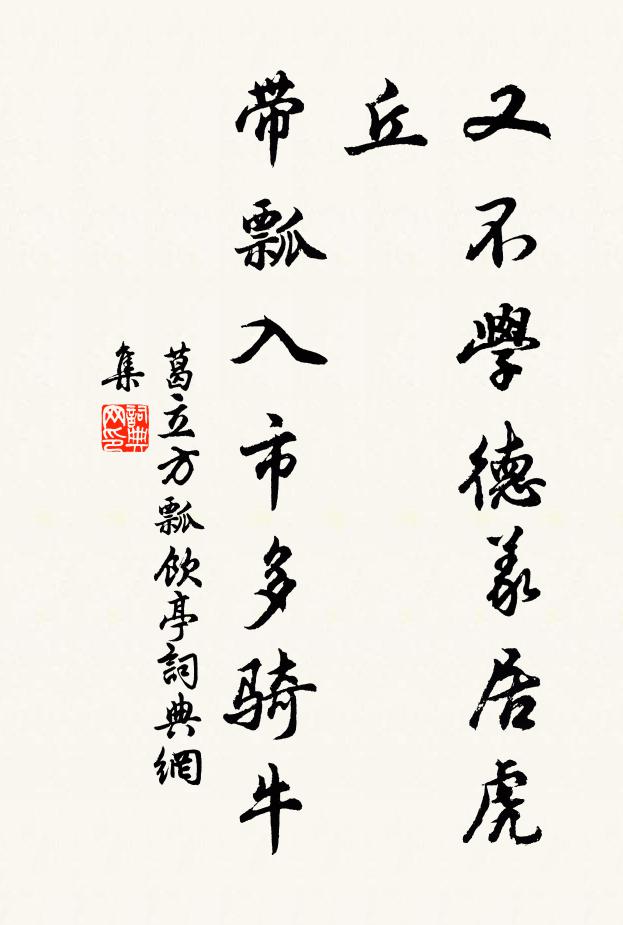 又不學德義居虎
丘
带瓢入市多騎牛
葛立方瓢飲亭詞典網
集
詞典
网印